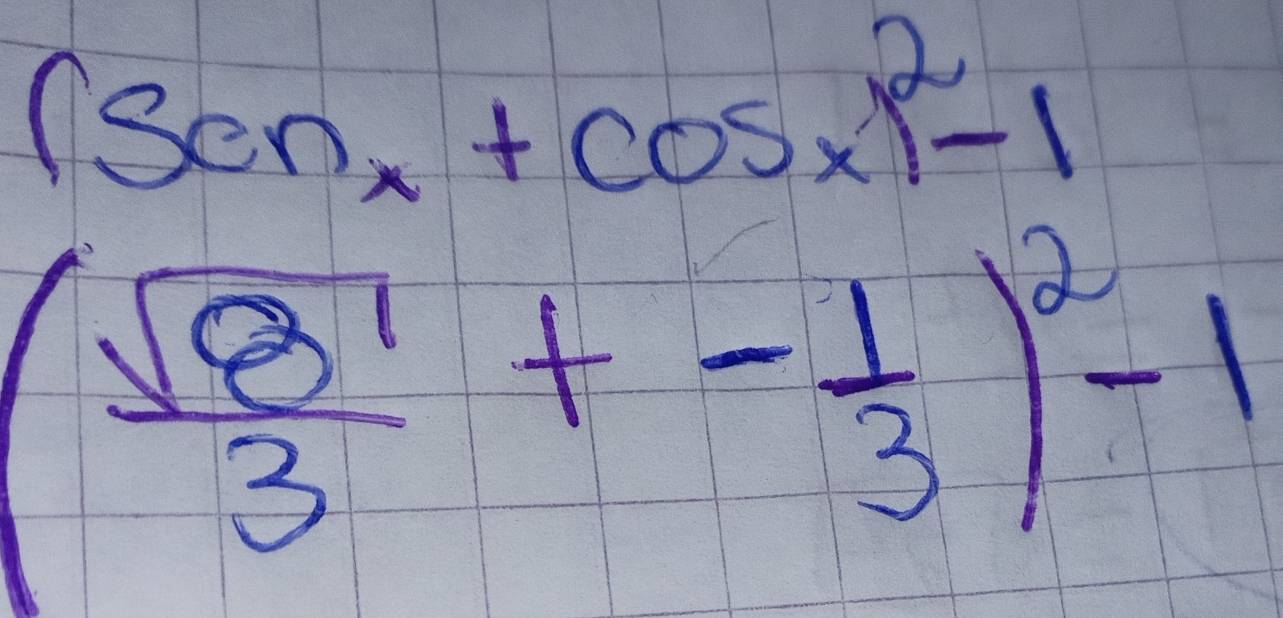 (Sen x + cos x)² - 1
(√8/3 + - 1/3)² - 1